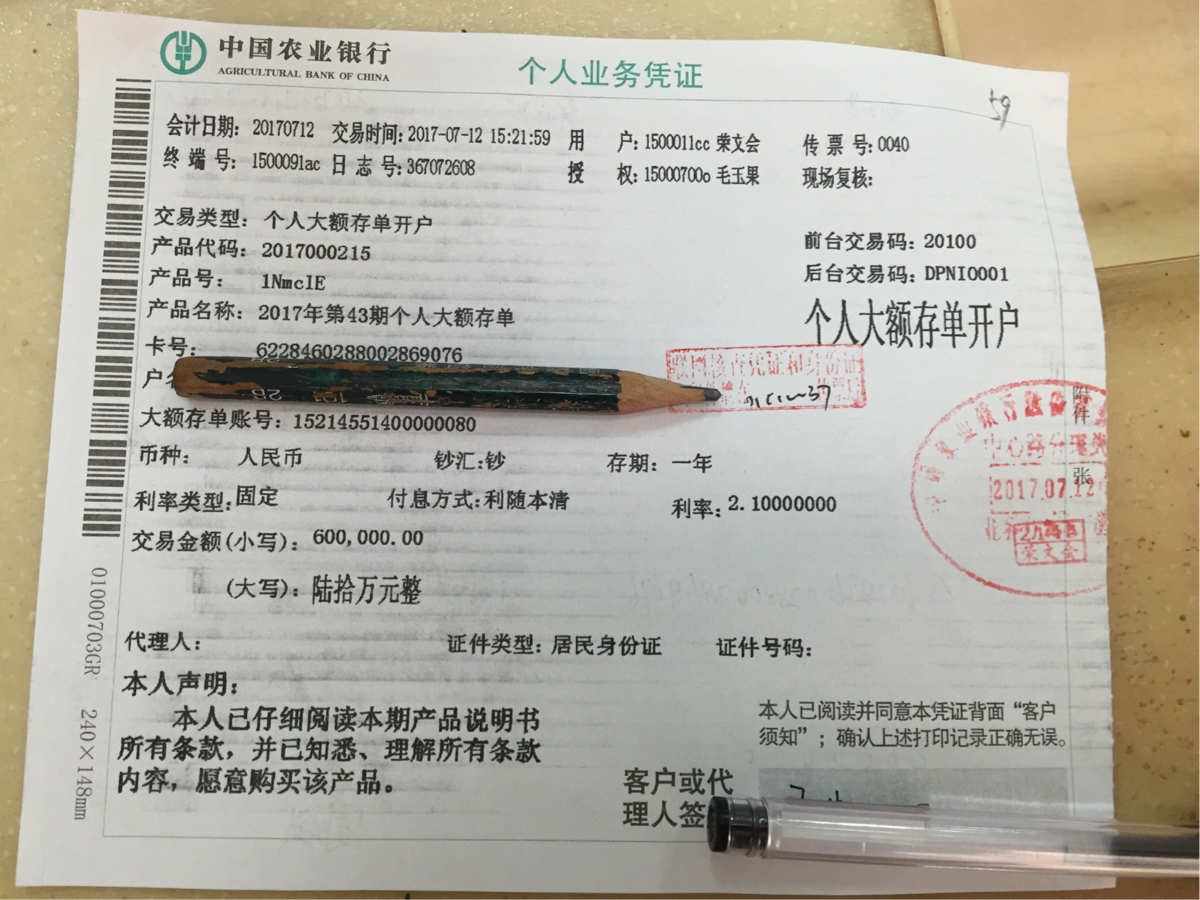 中国农业银行
AGRICULTURAL BANK OF CHINA
个人业务凭证
59
会计日期: 20170712 交易时间: 2017-07-12 15:21:59 用 户: 1500011cc 荣文会 传票号: 0040
终端号: 1500091ac 日志号: 367072608 授 权: 15000700o 毛玉果 现场复核:
交易类型: 个人大额存单开户
前台交易码: 20100
产品代码: 2017000215
后台交易码: DPNI0001
产品号: 1NmclE
个人大额存单开户
产品名称: 2017年第43期个人大额存单
卡号: 6228460288002869076
户
联网核查凭证和身份证
大额存单账号: 15214551400000080
附件
张
币种: 人民币 钞汇: 钞 存期: 一年
利率类型: 固定 付息方式: 利随本清 利率: 2.10000000
2017.07.12
荣文会
交易金额(小写): 600,000.00
(大写): 陆拾万元整
代理人: 证件类型: 居民身份证 证件号码:
本人声明:
本人已仔细阅读本期产品说明书
所有条款，并已知悉、理解所有条款
内容，愿意购买该产品。
本人已阅读并同意本凭证背面“客户
须知”；确认上述打印记录正确无误。
客户或代
理人签
01000703GR 240×148mm